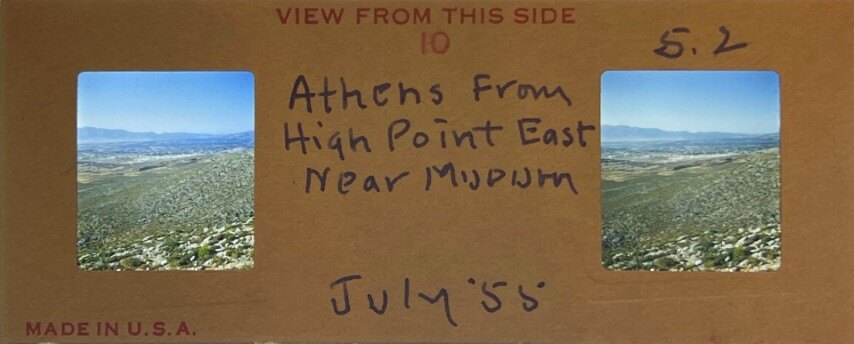 VIEW FROM THIS SIDE
10
5.2
Athens From
High Point East
Near Museum
July '55
MADE IN U.S.A.